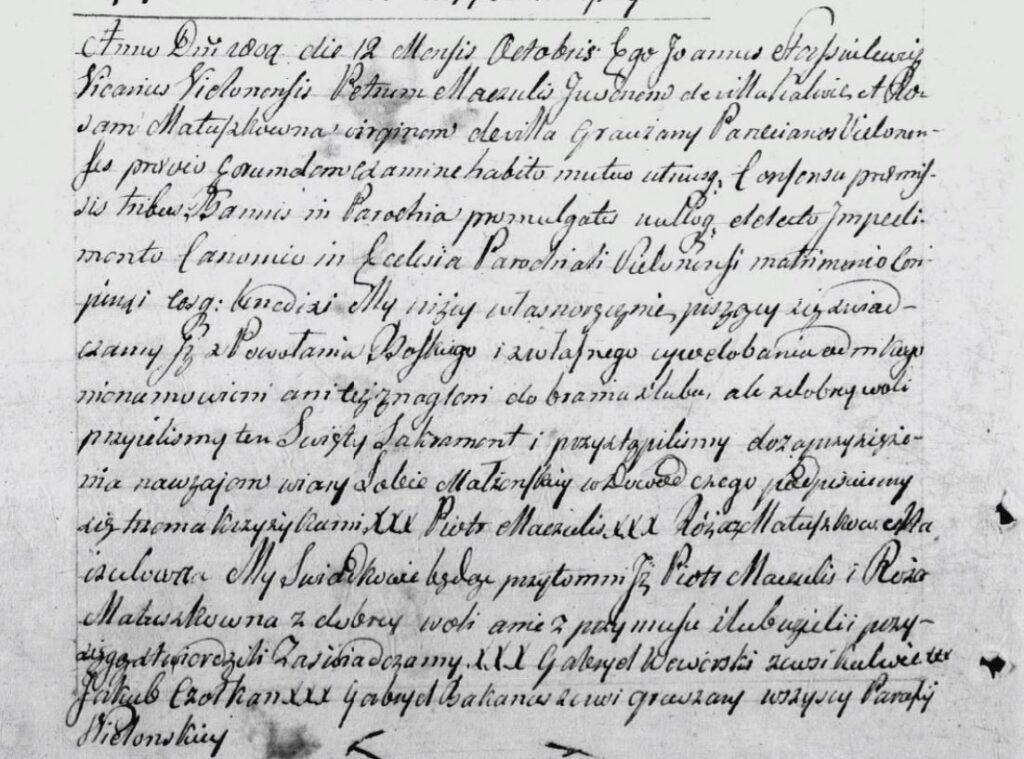 Anno Dni 1809 die 12 Mensis Octobris Ego Joannes
Vicarius Vielonensis Petrum Maczulis Juvenem de villa Kalwie, et Ro-
sam Matuszkowna virginem de villa Grauzany Parecianos Vielonen-
ses previo Eorumdem examine habito mutuo utriusq; Consensu præmis-
sis tribus Bannis in Parochia promulgatis nulloq; detecto Impedi-
mento Canonico in Ecclesia Parochiali Vielonensi matrimonio Con-
junxi eosq: benedixi My niżey własnoręcznie piszący się zaświad-
czamy Jż z Powołania Boskiego i z własnego upodobania od nikogo
nienamowieni ani też znagleni do brania szlubu, ale z dobrey woli
przyieliśmy ten Swięty Sakrament i przystąpiliśmy do zaprzysięże-
nia nawzajem wiary Sobie Małżenskiey w Dowod czego podpisuiemy
się trzema krzyżykami XXX Piotr Maczulis XXX Róża Matuszkowna
My Swiadkowie będąc przytomni Jż Piotr Maczulis i Roża
Matuszkowna z dobrey woli a nie z przymusu szlub wzieli i przy-
sięgą stwierdzili Zaswiadczamy XXX Gabryel Woworski zewsi Kalwie xxx
Jakub Czołkan XXX Gabryel Bakanas ze wsi Grauzany wszyscy Parafij
Wielonskiey